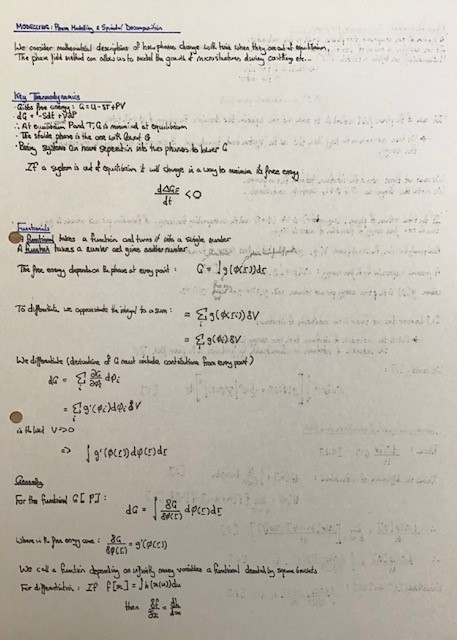 MODELLING: Phase Modelling & Spinodal Decomposition
We consider mathematical descriptions of how phases change with time when they are out of equilibrium,
The phase field method can allow us to model the growth of microstructures during casting etc...
Key Thermodynamics
· Gibbs free energy: G = U - ST + PV
· dG = -SdT + VdP
∴ At equilibrium P and T, G is minimised at equilibrium
· The stable phase is the one with lowest G
· Binary systems can move separation into two phases to lower G
If a system is out of equilibrium it will change in a way to minimise its free energy
dΔG/dt < 0
Functionals
A functional takes a function and turns it into a single number
A function takes a number and gives another number
The free energy depends on the phase at every point: G = ∫g(φ(r))dr
To differentiate, we approximate the integral to a sum: = Σ g(φ(ri))δV
= Σ g(φi)δV
We differentiate (derivative of G must include contributions from every point)
dG = Σ ∂G/∂φi dφi
= Σ g'(φi)dφi δV
in the limit V->0
=> ∫ g'(φ(r))dφ(r)dr
Generally
For the functional G[φ]:
dG = ∫ δG/δφ(r) dφ(r)dr
Where in the free energy case: δG/δφ(r) = g'(φ(r))
We call a function depending on infinitely many variables a functional denoted by square brackets
For differentiation: If f[x] = ∫h(x(u))du
then δf/δx = dh/dx